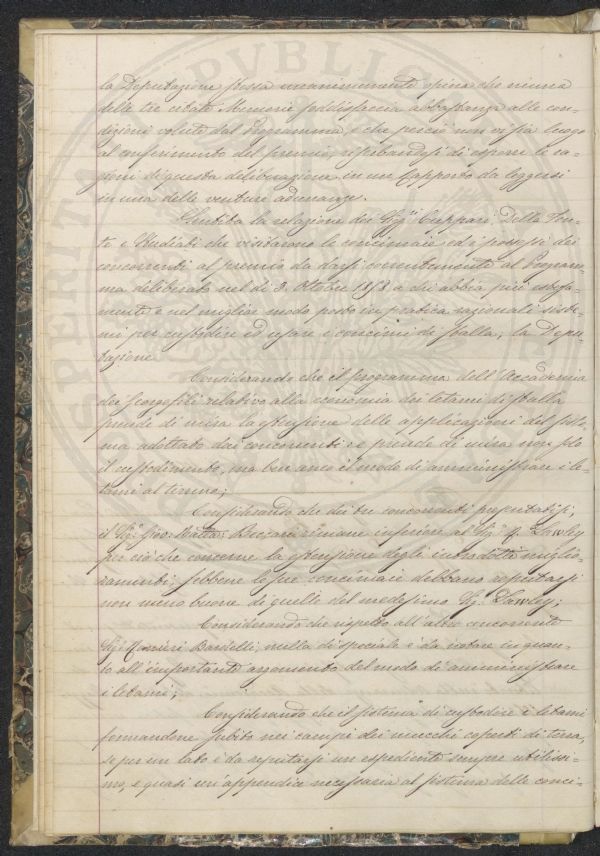 la Deputazione stessa unanimemente opina che niuna
delle tre citate Memorie soddisfaccia abbastanza alle con-
dizioni volute dal Programma, e che perciò non vi sia luogo
al conferimento del premio, riserbandosi di esporre le ra-
gioni di questa deliberazione in un Rapporto da leggersi
in una delle venture adunanze.
Sentita la relazione dei Sigg.ri Cuppari, Della Fon-
te e Studiati che visitarono le concimaie ed i possessi dei
concorrenti al premio da darsi coerentemente al Program-
ma deliberato nel dì 3. Ottobre 1858 a chi abbia più estesa-
mente e nel miglior modo posto in pratica razionali siste-
mi per custodire ed usare i concimi di stalla, la Depu-
tazione
Considerando che il programma dell'Accademia
dei Georgofili relativo alla economia dei letami di stalla
prende di mira la estensione delle applicazioni del siste-
ma adottato dai concorrenti e prende di mira non solo
il custodimento, ma ben anco il modo di amministrare i le-
tami al terreno;
Considerando che dei tre concorrenti presentatisi,
il Sig.r Giov. Batta rimane inferiore al Sig.r Lawley
per ciò che concerne la estensione degli introdotti miglio-
ramenti; sebbene le sue concimaie debbano reputarsi
non meno buone di quelle del medesimo Sig.r Lawley;
Considerando che rispetto all'altro concorrente
Sig.r Ranieri Bardelli, nulla di speciale è da notare in quan-
to all'importante argomento del modo di amministrare
i letami;
Considerando che il sistema di custodire i letami
formandone subito nei campi dei mucchi coperti di terra,
se per un lato è da reputarsi un espediente sempre utilissi-
mo, e quasi un'appendice necessaria al sistema delle conci-